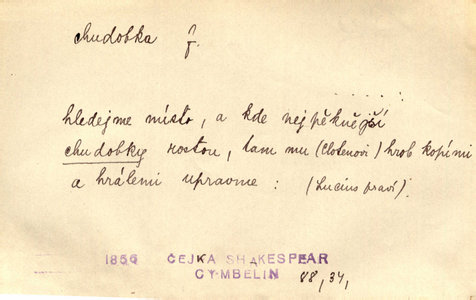 chudobka f.
. . . . . .
hledejme místo, a kde nejpěknější
chudobky rostou, tam mu (Clotenovi) hrob kopími
a hrálemi upravme : (Lucius praví).
1856 ČEJKA SHAKESPEAR
CYMBELIN 88, 34,